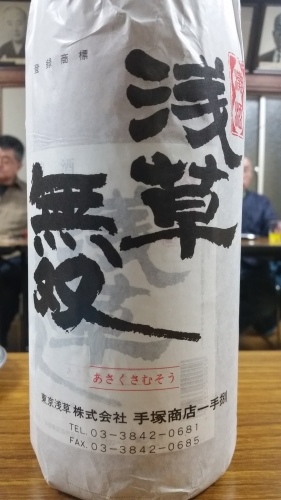 登録商標
浅草
無双
あさくさむそう
東京浅草 株式会社 手塚商店一手
TEL. 03-3842-0681
FAX. 03-3842-0685